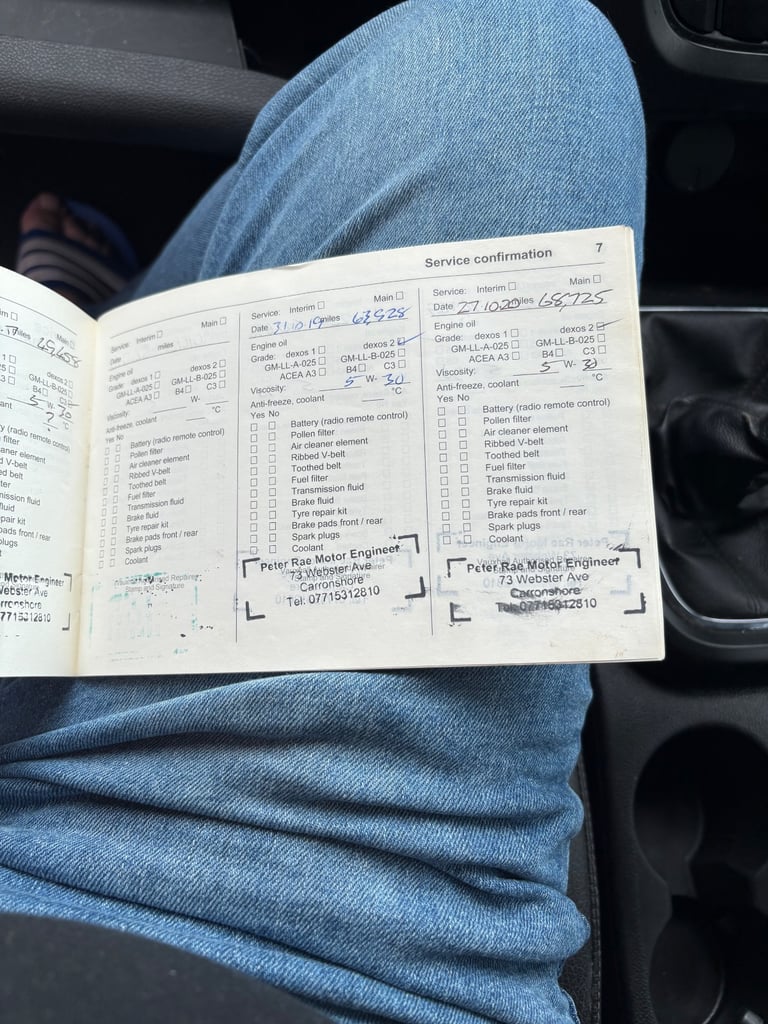 Service confirmation 7
Main ☐
dexos 2
GM-LL-B-025
B4☐ C3
5 W- 30
? °C
(radio remote control)
filter
element
V-belt
belt
filter
fluid
fluid
kit
pads front / rear
plugs
Motor Engineer
Webster Ave
Carronshore
07715312810
Service: Interim ☐ Main ☐
Date miles
Engine oil
Grade: dexos 1 ☐ dexos 2 ☐
GM-LL-A-025 ☐ GM-LL-B-025 ☐
ACEA A3 ☐ B4☐ C3 ☐
Viscosity: W-
Anti-freeze, coolant °C
Yes No
☐ ☐ Battery (radio remote control)
☐ ☐ Pollen filter
☐ ☐ Air cleaner element
☐ ☐ Ribbed V-belt
☐ ☐ Toothed belt
☐ ☐ Fuel filter
☐ ☐ Transmission fluid
☐ ☐ Brake fluid
☐ ☐ Tyre repair kit
☐ ☐ Brake pads front / rear
☐ ☐ Spark plugs
☐ ☐ Coolant
Vauxhall Authorised Repairer
Stamp and Signature
Service: Interim ☐ Main ☐
Date 31.10.19 miles 63,928
Engine oil
Grade: dexos 1 ☐ dexos 2 ☑
GM-LL-A-025 ☐ GM-LL-B-025 ☐
ACEA A3 ☐ B4 ☐ C3 ☐
Viscosity: 5 W- 30
Anti-freeze, coolant °C
Yes No
☐ ☐ Battery (radio remote control)
☐ ☐ Pollen filter
☐ ☐ Air cleaner element
☐ ☐ Ribbed V-belt
☐ ☐ Toothed belt
☐ ☐ Fuel filter
☐ ☐ Transmission fluid
☐ ☐ Brake fluid
☐ ☐ Tyre repair kit
☐ ☐ Brake pads front / rear
☐ ☐ Spark plugs
☐ ☐ Coolant
Peter Rae Motor Engineer
Vauxhall Authorised Repairer
73 Webster Ave
Stamp and Signature
Carronshore
Tel: 07715312810
Service: Interim ☐ Main ☐
Date 27.10.20 miles 68,725
Engine oil
Grade: dexos 1 ☐ dexos 2 ☑
GM-LL-A-025 ☐ GM-LL-B-025 ☐
ACEA A3 ☐ B4 ☐ C3 ☐
Viscosity: 5 W- 30
Anti-freeze, coolant °C
Yes No
☐ ☐ Battery (radio remote control)
☐ ☐ Pollen filter
☐ ☐ Air cleaner element
☐ ☐ Ribbed V-belt
☐ ☐ Toothed belt
☐ ☐ Fuel filter
☐ ☐ Transmission fluid
☐ ☐ Brake fluid
☐ ☐ Tyre repair kit
☐ ☐ Brake pads front / rear
☐ ☐ Spark plugs
☐ ☐ Coolant
Vauxhall Authorised Repairer
Peter Rae Motor Engineer
73 Webster Ave
Carronshore
Tel: 07715312810